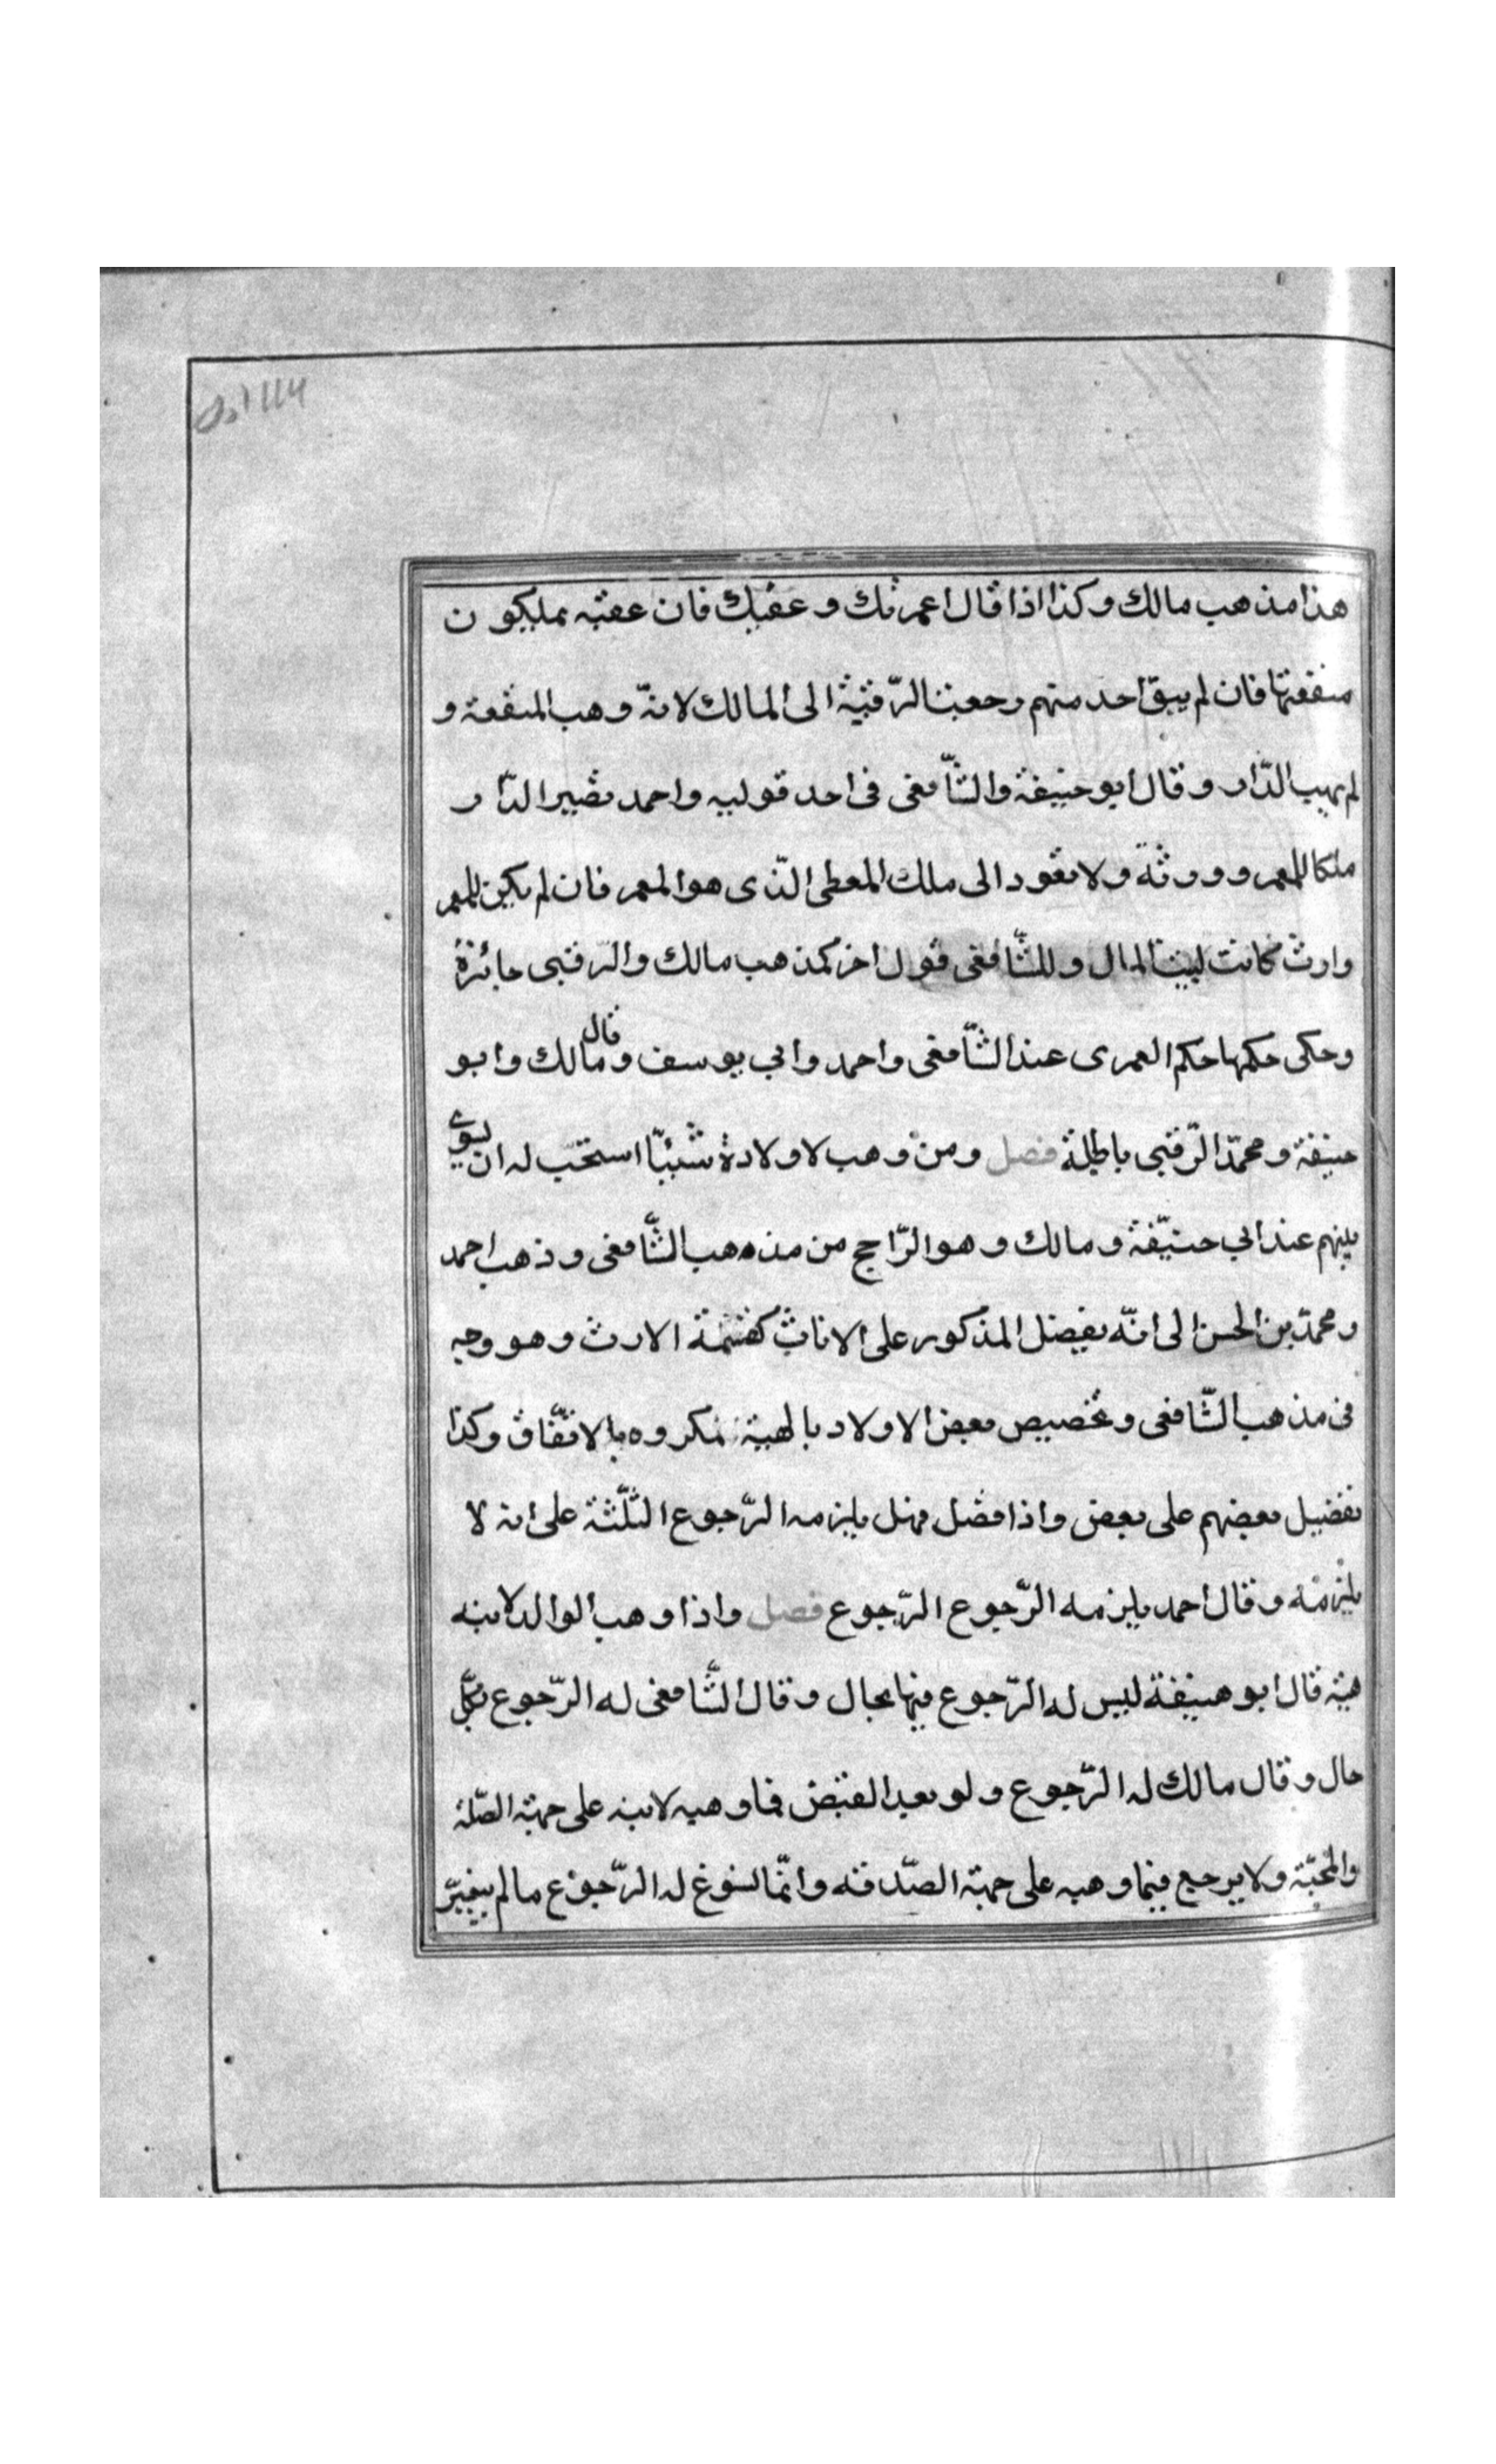 هذا مذهب مالك وكذا اذا قال اعمرتك و عقبك فان عقبه يمليكون
منفعتها فان لم يبق احد منهم رجعت الرّقبة الى المالك لانّه وهب المنفعة و
لم يهب الدّار و قال ابو حنيفة والشّافعى فى احد قوليه واحمد تصير الدّار
ملكا للمعمر و ورثة ولا تعود الى ملك المعطى الّذى هو المعمر فان لم يكن للمعمر
وارث كانت لبيت المال و للشّافعى قول اخر كمذهب مالك والرقبى جائزة
وحكى حكمها حكم العمرى عند الشّافعى واحمد وابي يوسف و قال مالك وابو
حنيفة و محمّد الرّقبى باطلة فصل ومن وهب لاولاده شيئاً استحبّ له ان يسوي
بينهم عند ابي حنيفة و مالك و هو الرّاجح من مذهب الشّافعى وذهب احمد
و محمّد بن الحسن الى انّه يفضل المذكور على الاناث كقسمة الارث وهو وجه
فى مذهب الشّافعى و تخصيص بعض الاولاد بالهبة مكروه بالاتّفاق وكذا
تفضيل بعضهم على بعض واذا فضل فهل يلزمه الرّجوع الثّلثة على انه لا
يلزمه وقال احمد يلزمه الرّجوع الرّجوع فصل واذا وهب الوالد لابنه
هبة قال ابو هنيفة ليس له الرّجوع فيها بحال و قال الشّافعى له الرّجوع بكلّ
حال و قال مالك له الرّجوع و لو بعد القبض فما وهبه لابنه على جهة الصّلة
والمحبّة ولا يرجع فيما وهبه على جهة الصّدقه وانّما يسوغ له الرّجوع ما لم يتغيّر